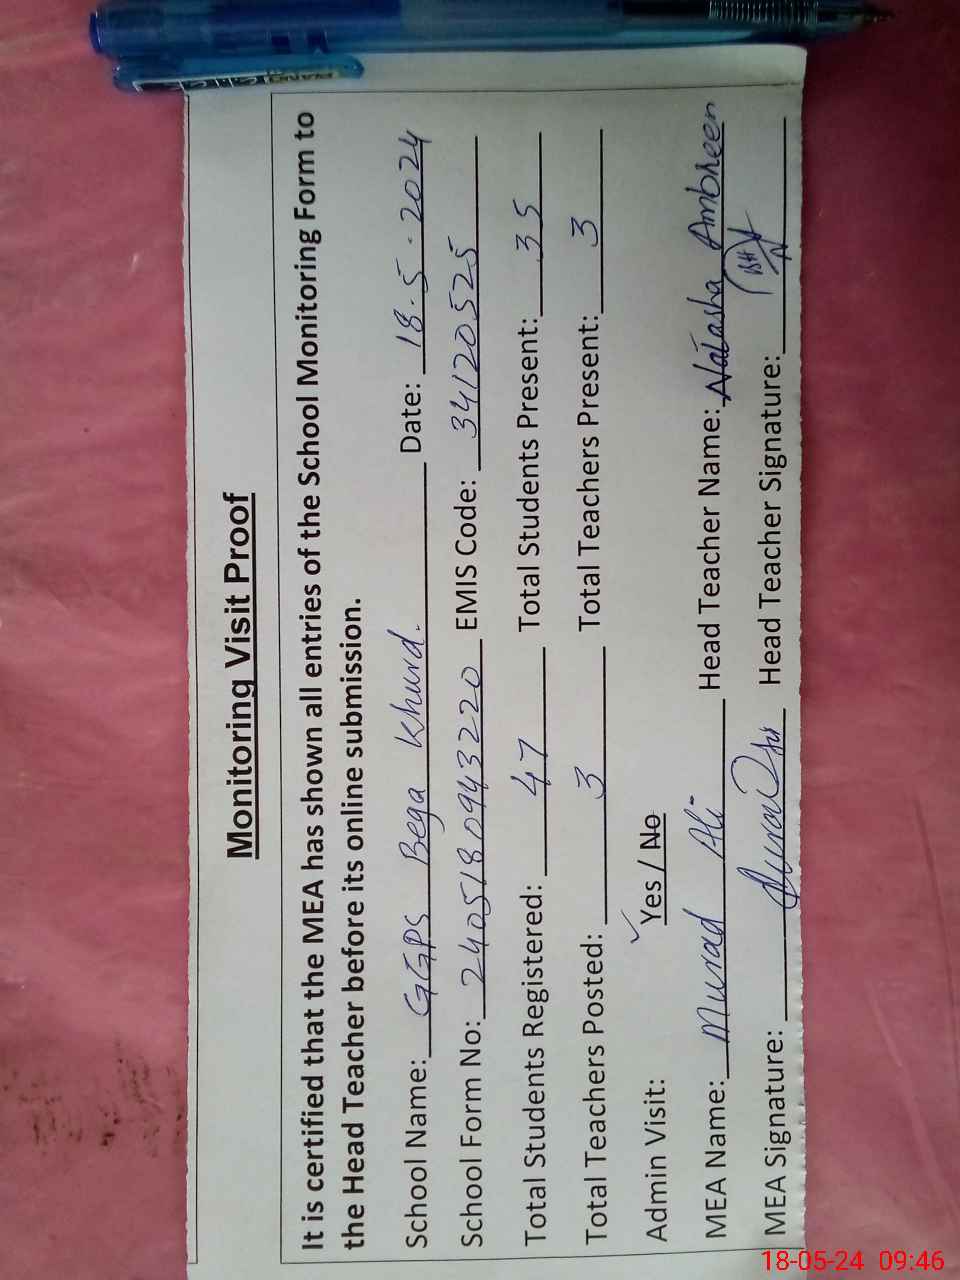 Monitoring Visit Proof
It is certified that the MEA has shown all entries of the School Monitoring Form to
the Head Teacher before its online submission.
School Name: GGPS Bega Khurd. Date: 18.5.2024
School Form No: 2405180943220 EMIS Code: 34120525
Total Students Registered: 47 Total Students Present: 35
Total Teachers Posted: 3 Total Teachers Present: 3
Admin Visit: ✓Yes / No
MEA Name: Murad Ali Head Teacher Name: Natasha Ambreen
MEA Signature: Head Teacher Signature:
18-05-24 09:46